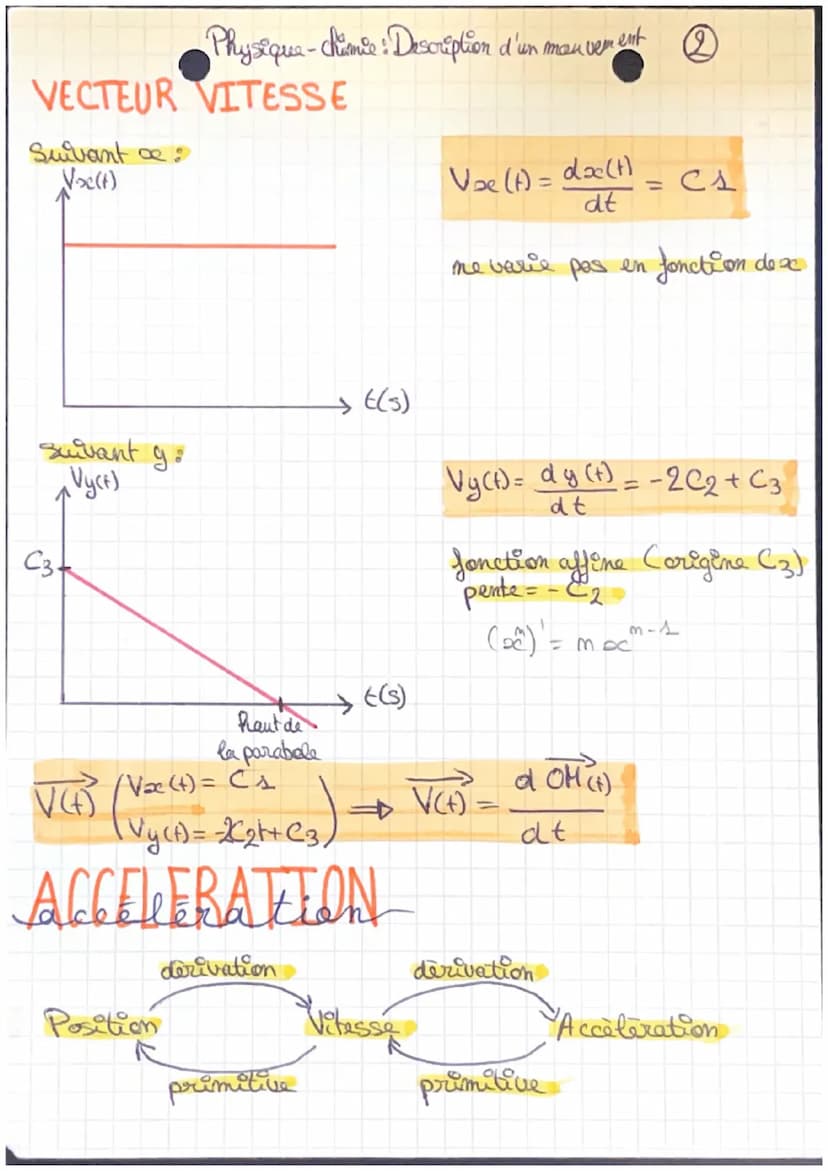 Physique-chimie : Description d'un mouvement ②
VECTEUR VITESSE
Suivant x :
Vx(t)
t(s)
Vx(t) = dx(t)/dt = C1
ne varie pas en fonction de x
suivant y :
Vy(t)
C3
t(s)
haut de
la parabole
Vy(t) = dy(t)/dt = -2C2 + C3
fonction affine (origine C3)
pente = - C2
(x^n)' = n x^n-1
V(t) (Vx(t) = C1
Vy(t) = -C2t + C3) ⇒ V(t) = d OM(t)/dt
ACCELERATION
accélération
dérivation
dérivation
Position
Vitesse
Accélération
primitive
primitive